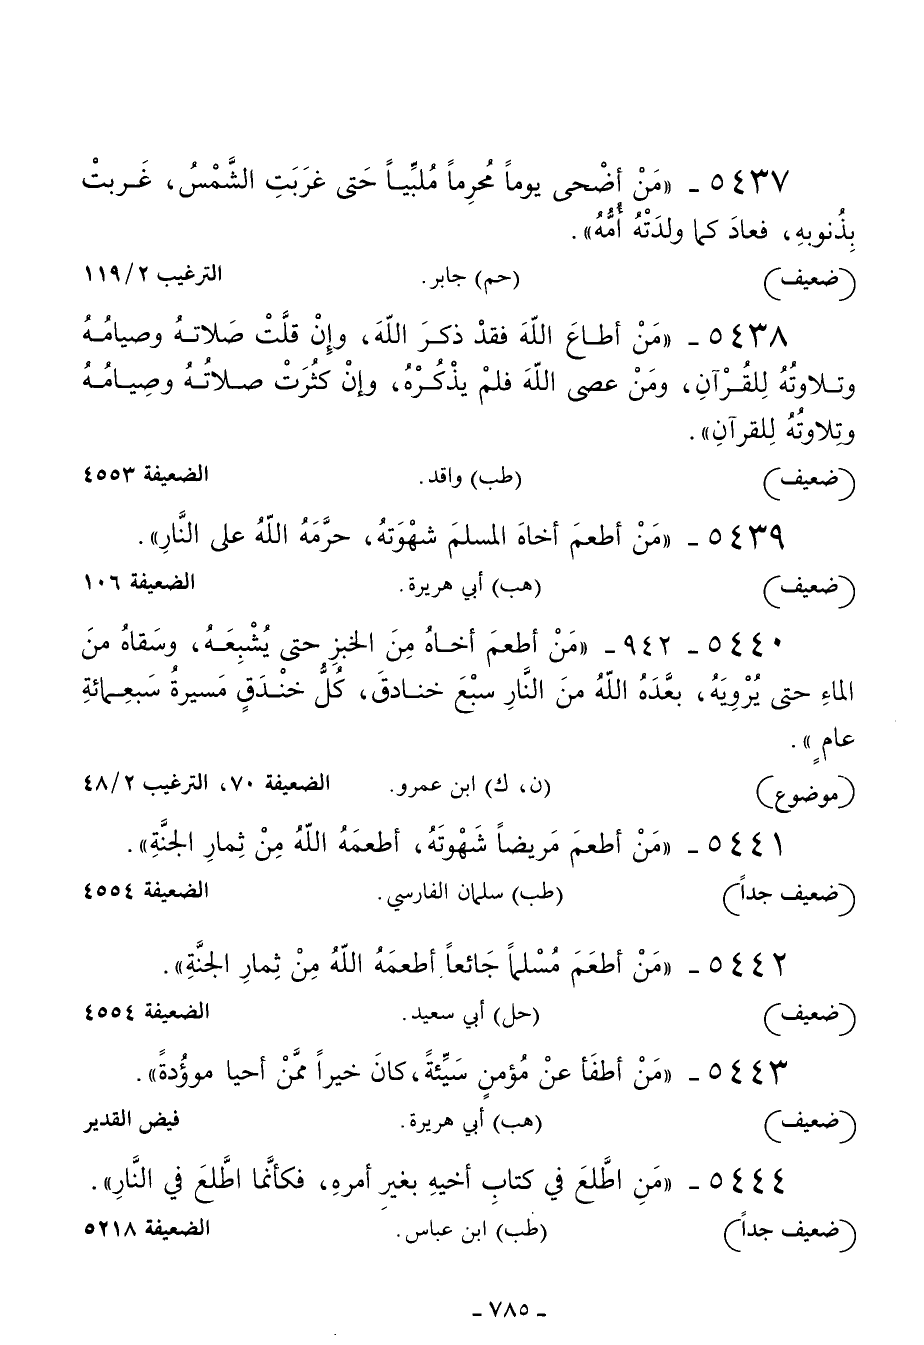 ٥٤٣٧ ـ «مَنْ أضْحى يوماً مُحرِماً مُلبِّياً حَتى غرَبَتِ الشَّمْسُ، غَربتْ
بِذُنوبهِ، فعادَ كما ولدَتْهُ أُمُّهُ».
(ضعيف) (حم) جابر. الترغيب ١١٩/٢
٥٤٣٨ ـ «مَنْ أطاعَ اللّهَ فقدْ ذكرَ اللّهَ، وإِنْ قلَّتْ صَلاتهُ وصيامُهُ
وتلاوتُهُ لِلقُرْآنِ، ومَنْ عصى اللّهَ فلمْ يذْكُرْهُ، وإنْ كثُرَتْ صلاتُهُ وصِيامُهُ
وتِلاوتُهُ لِلقرآنِ».
(ضعيف) (طب) واقد. الضعيفة ٤٥٥٣
٥٤٣٩ ـ «مَنْ أطعمَ أخاهَ المسلمَ شهْوَتهُ، حرَّمَهُ اللّهُ على النَّارِ».
(ضعيف) (هب) أبي هريرة. الضعيفة ١٠٦
٥٤٤٠ ـ ٩٤٢ـ «مَنْ أطعمَ أخاهُ مِنَ الخبزِ حتى يُشْبِعَهُ، وسَقاهُ منَ
الماءِ حتى يُرْوِيَهُ، بعَّدَهُ اللّهُ منَ النَّارِ سبْعَ خنادقَ، كُلُّ خنْدَقٍ مَسيرةُ سَبعِمائةِ
عامٍ».
(موضوع) (ن، ك) ابن عمرو. الضعيفة ٧٠، الترغيب ٤٨/٢
٥٤٤١ ـ «مَنْ أطعمَ مَريضاً شَهْوتَهُ، أطعمَهُ اللّهُ مِنْ ثِمارِ الجنَّةِ».
(ضعيف جداً) (طب) سلمان الفارسي. الضعيفة ٤٥٥٤
٥٤٤٢ ـ «مَنْ أطعَمَ مُسْلماً جَائعاً أطعمَهُ اللّهُ مِنْ ثِمارِ الجنَّةِ».
(ضعيف) (حل) أبي سعيد. الضعيفة ٤٥٥٤
٥٤٤٣ ـ «مَنْ أطفَأ عنْ مُؤمنٍ سَيِّئةً، كانَ خيراً ممَّنْ أحيا موؤُدةً».
(ضعيف) (هب) أبي هريرة. فيض القدير
٥٤٤٤ ـ «مَنِ اطَّلعَ في كتابِ أخيهِ بغيرِ أمرهِ، فكأنَّما اطَّلعَ في النَّارِ».
(ضعيف جداً) (طب) ابن عباس. الضعيفة ٥٢١٨
ـ ٧٨٥ ـ